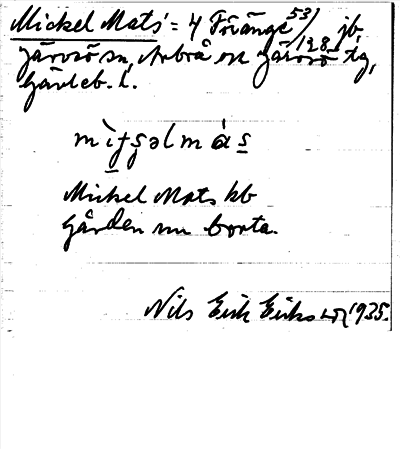 Mickel Mats' = 4 Föränge 53/128 jb,
Järvsö sn, Arbrå och Järvsö tg,
Gävleb. l.
Mickel Mats kb
Gården nu borta.
Nils Erik Erikson 1935.